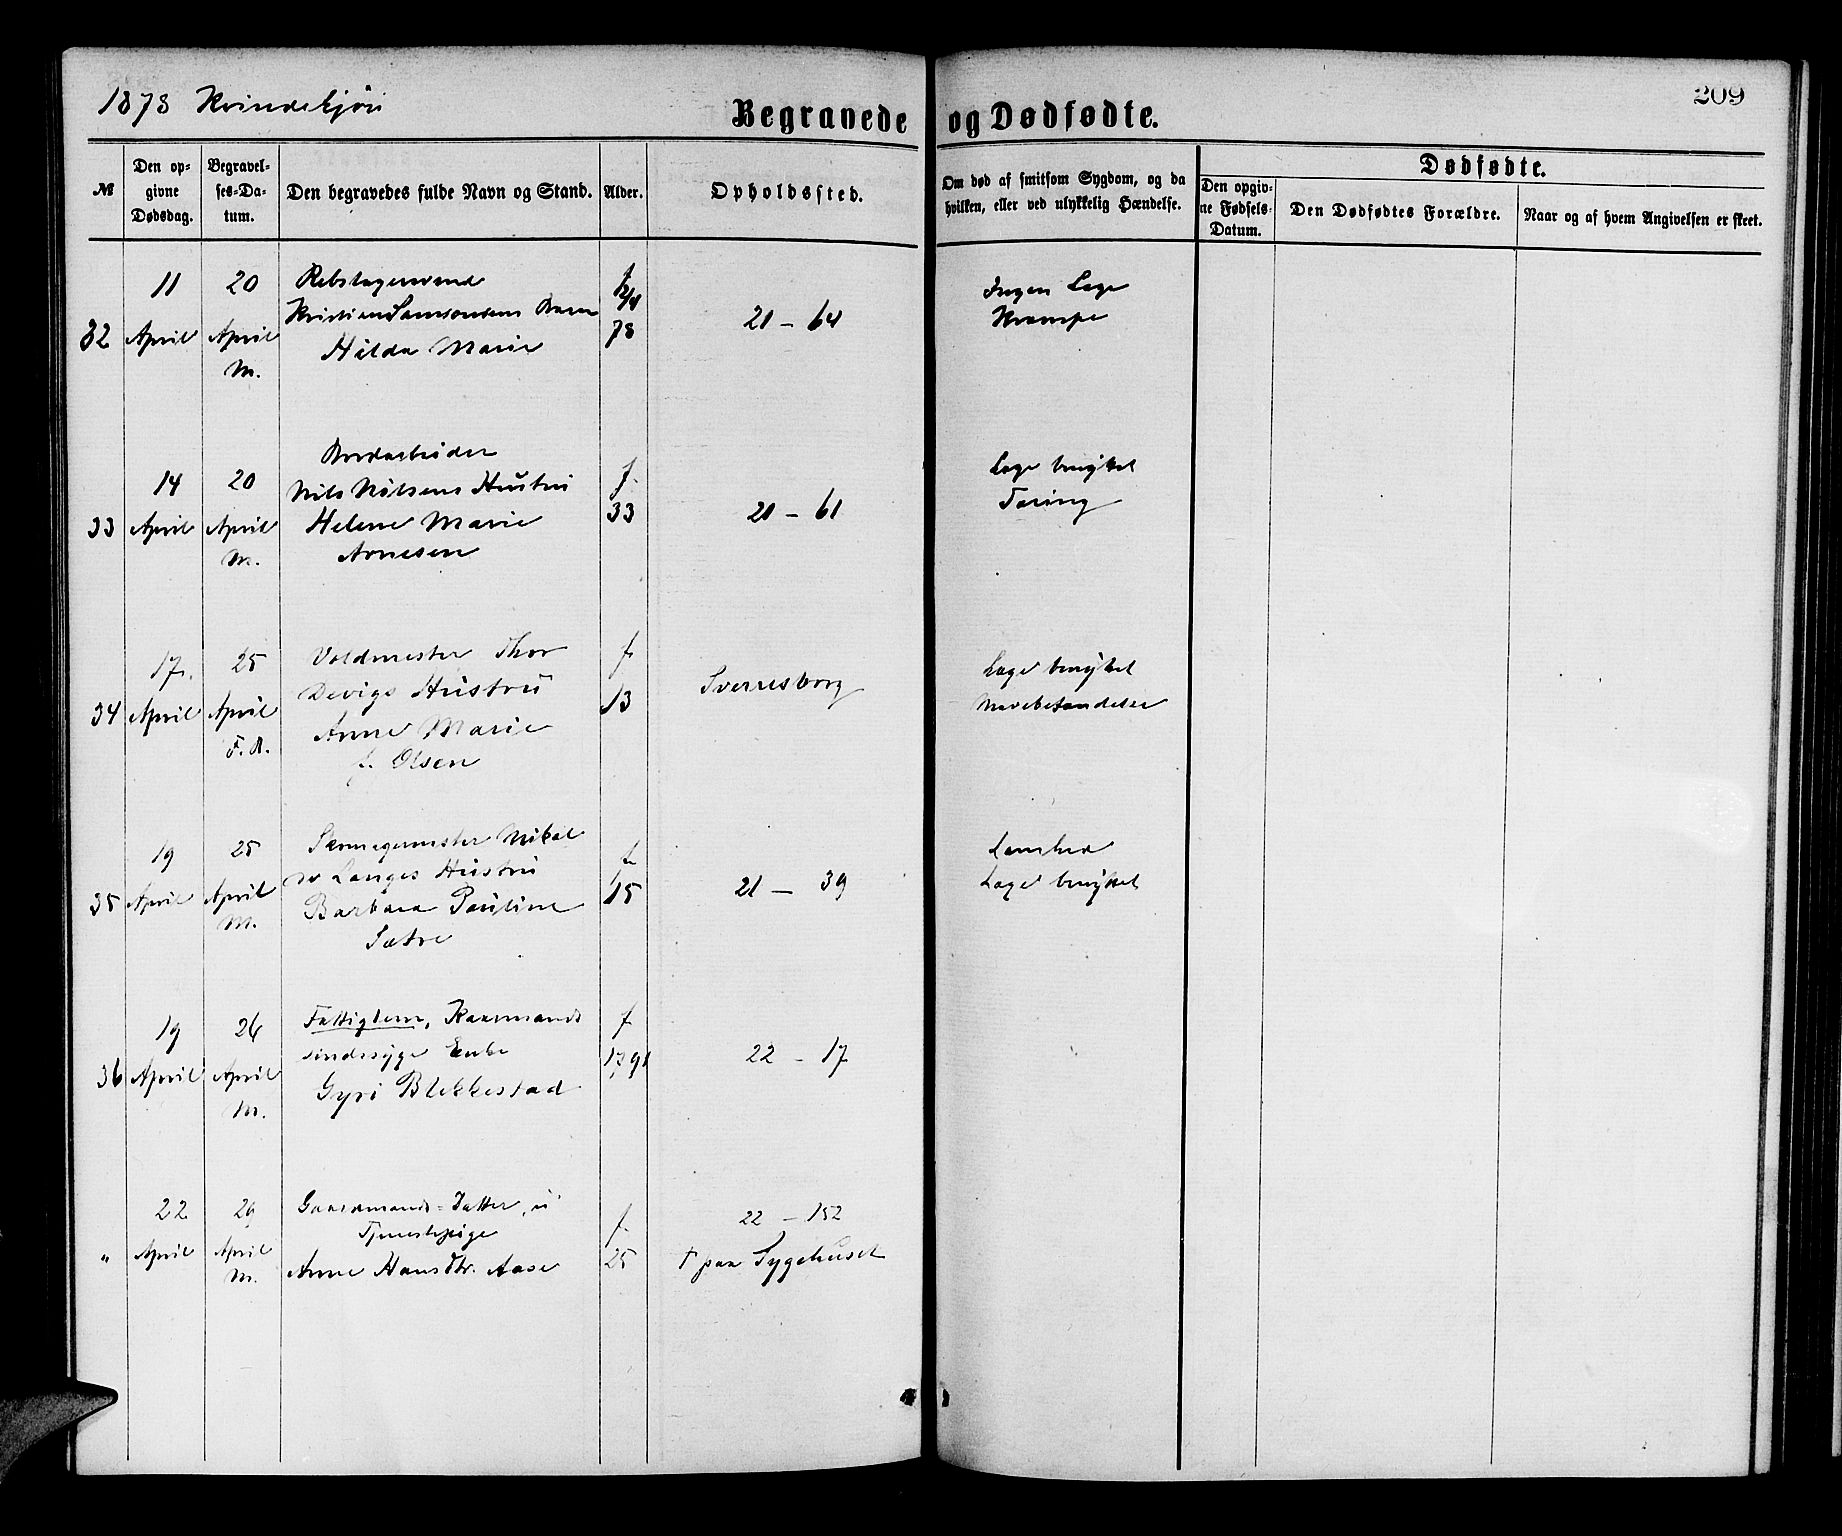 1878 Kvindekjön
Begravede og Dødfødte.
209
№
Den opgivne Dødsdag.
Begravelses-Datum.
Den begravedes fulde Navn og Stand.
Alder.
Opholdssted.
Om død af smitsom Sygdom, og da hvilken, eller ved ulykkelig Hændelse.
Dødfødte.
Den opgivne Fødsels-Datum.
Den Dødfødtes Forældre.
Naar og af hvem Angivelsen er skeet.
32
11
April
20
April
M.
Kristian Samsonsens Barn
Hilda Marie
f.
78
21 - 64
Ingen Læge
Krampe
33
14
April
20
April
M.
Nils Nilsens Hustru
Helene Marie
Arnesen
f.
33
21 - 61
Læge benyttet
Tæring
34
17.
April
25
April
F. A.
Voldmester Thor
Devigs Hustru
Anne Marie
f. Olsen
f.
13
Sverresborg
Læge benyttet
35
19
April
25
April
M.
Nikol
v Langes Hustru
Barbara Pauline
Sætre
f.
15
21 - 39
Læge benyttet
36
19
April
26
April
M.
Fattiglem,
sindssyge Enke
Gyri Blekkestad
f.
1791
22 - 17
"
22
April
29
April
M.
Gaardmands-Datter, u
Tjenestepige
Anne Hansdtr. Aase
f.
25
22 - 152
† paa Sygehuset